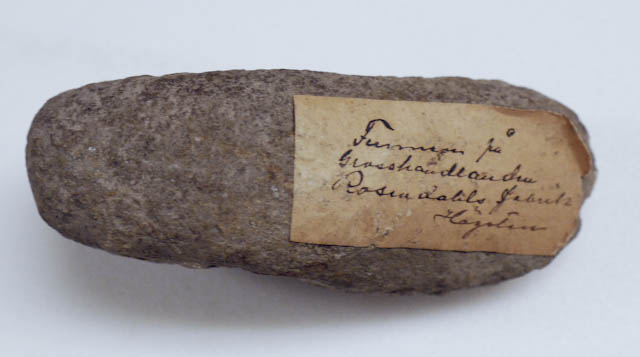 Funnen på
Grosshandlanden
Rosendahls fabrik
Högsten